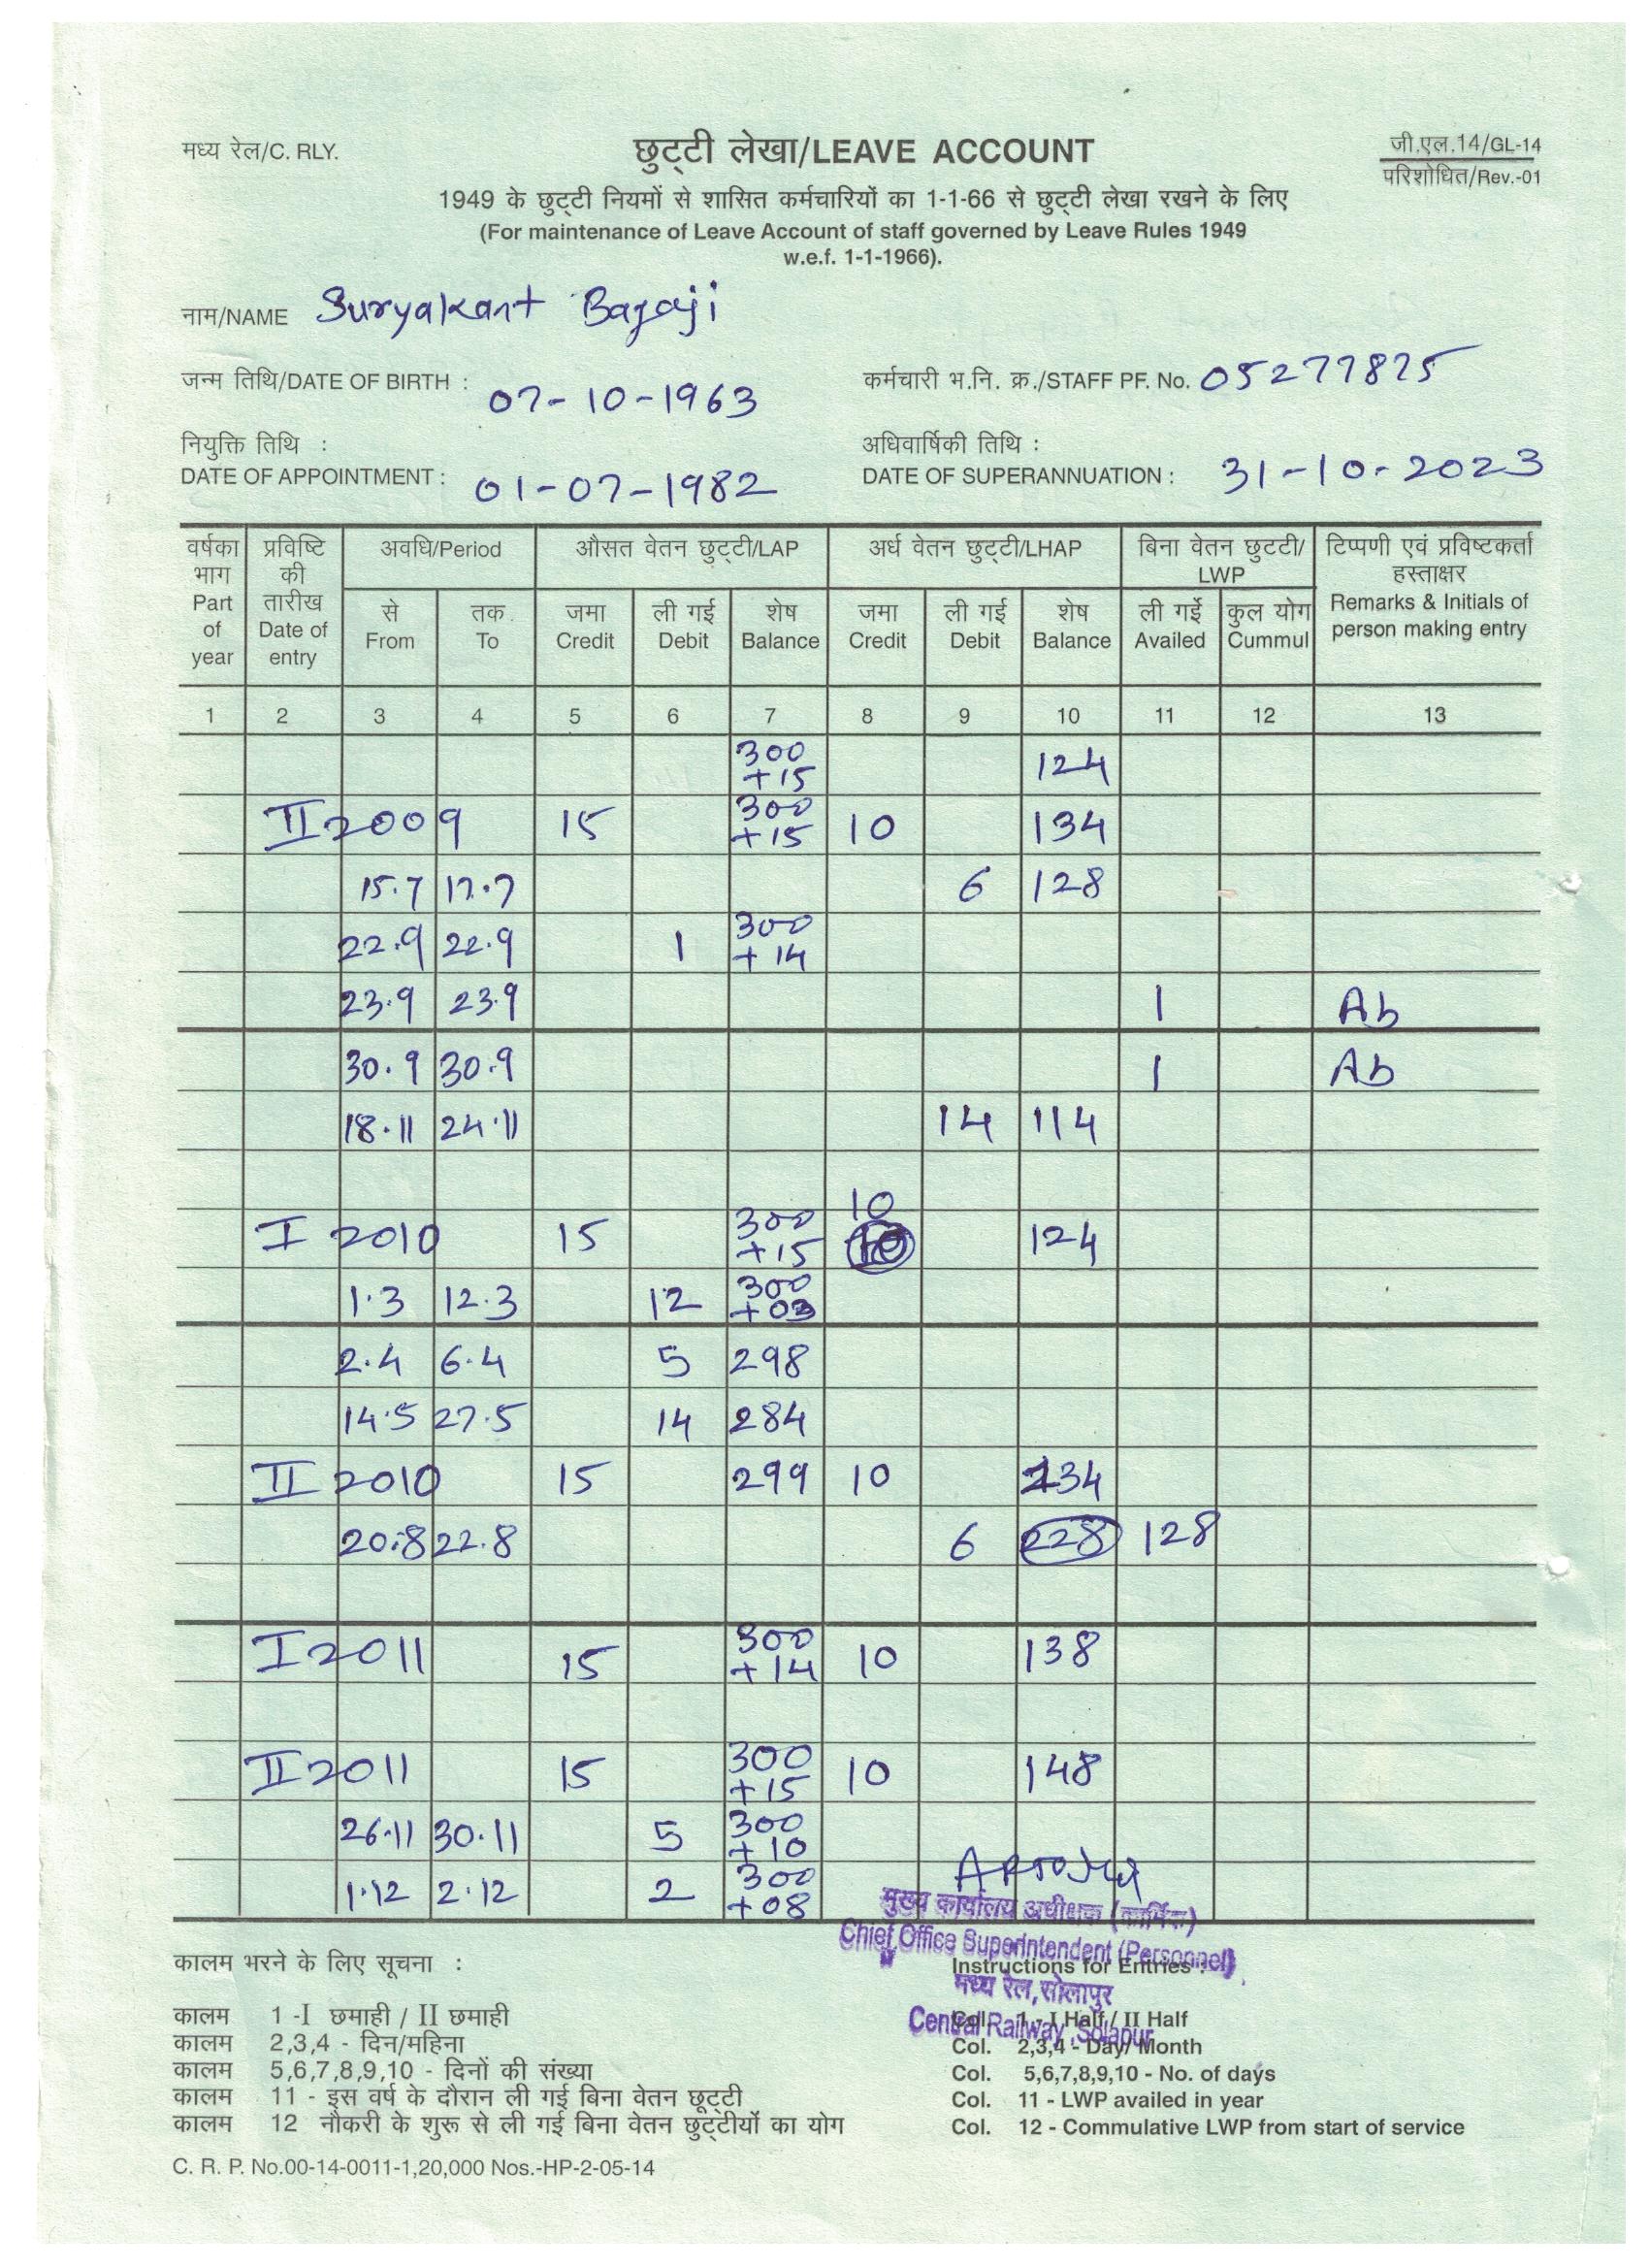 मध्य रेल/C. RLY.
छुट्टी लेखा/LEAVE ACCOUNT
जी.एल.14/GL-14
परिशोधित/Rev.-01
1949 के छुट्टी नियमों से शासित कर्मचारियों का 1-1-66 से छुट्टी लेखा रखने के लिए
(For maintenance of Leave Account of staff governed by Leave Rules 1949
w.e.f. 1-1-1966).
नाम/NAME Suryakant Bagaji
जन्म तिथि/DATE OF BIRTH : 07-10-1963
कर्मचारी भ.नि. क्र./STAFF PF. No. 05277875
नियुक्ति तिथि :
DATE OF APPOINTMENT : 01-07-1982
अधिवार्षिकी तिथि :
DATE OF SUPERANNUATION : 31-10-2023
वर्षका भाग Part of year
प्रविष्टि की तारीख Date of entry
अवधि/Period
औसत वेतन छुट्टी/LAP
अर्ध वेतन छुट्टी/LHAP
बिना वेतन छुटटी/ LWP
टिप्पणी एवं प्रविष्टकर्ता हस्ताक्षर Remarks & Initials of person making entry
से From
तक. To
जमा Credit
ली गई Debit
शेष Balance
जमा Credit
ली गई Debit
शेष Balance
ली गई Availed
कुल योग Cummul
1 2 3 4 5 6 7 8 9 10 11 12 13
300 +15 124
II 2009 15 300 +15 10 134
15.7 17.7 6 128
22.9 22.9 1 300 +14
23.9 23.9 1 Ab
30.9 30.9 1 Ab
18.11 24.11 14 114
I 2010 15 300 +15 10 124
1.3 12.3 12 300 +03
2.4 6.4 5 298
14.5 27.5 14 284
II 2010 15 299 10 134
20.8 22.8 6 228 128
I 2011 15 300 +14 10 138
II 2011 15 300 +15 10 148
26.11 30.11 5 300 +10
1.12 2.12 2 300 +08
मुख्य कार्यालय अधीक्षक (कार्मिक)
Chief Office Superintendent (Personnel)
मध्य रेल, सोलापुर
Central Railway, Solapur
कालम भरने के लिए सूचना :
कालम 1 -I छमाही / II छमाही
कालम 2,3,4 - दिन/महिना
कालम 5,6,7,8,9,10 - दिनों की संख्या
कालम 11 - इस वर्ष के दौरान ली गई बिना वेतन छूट्टी
कालम 12 नौकरी के शुरू से ली गई बिना वेतन छुट्टीयों का योग
Instructions for Entries :
Col. 1 - I Half / II Half
Col. 2,3,4 - Day/ Month
Col. 5,6,7,8,9,10 - No. of days
Col. 11 - LWP availed in year
Col. 12 - Commulative LWP from start of service
C. R. P. No.00-14-0011-1,20,000 Nos.-HP-2-05-14